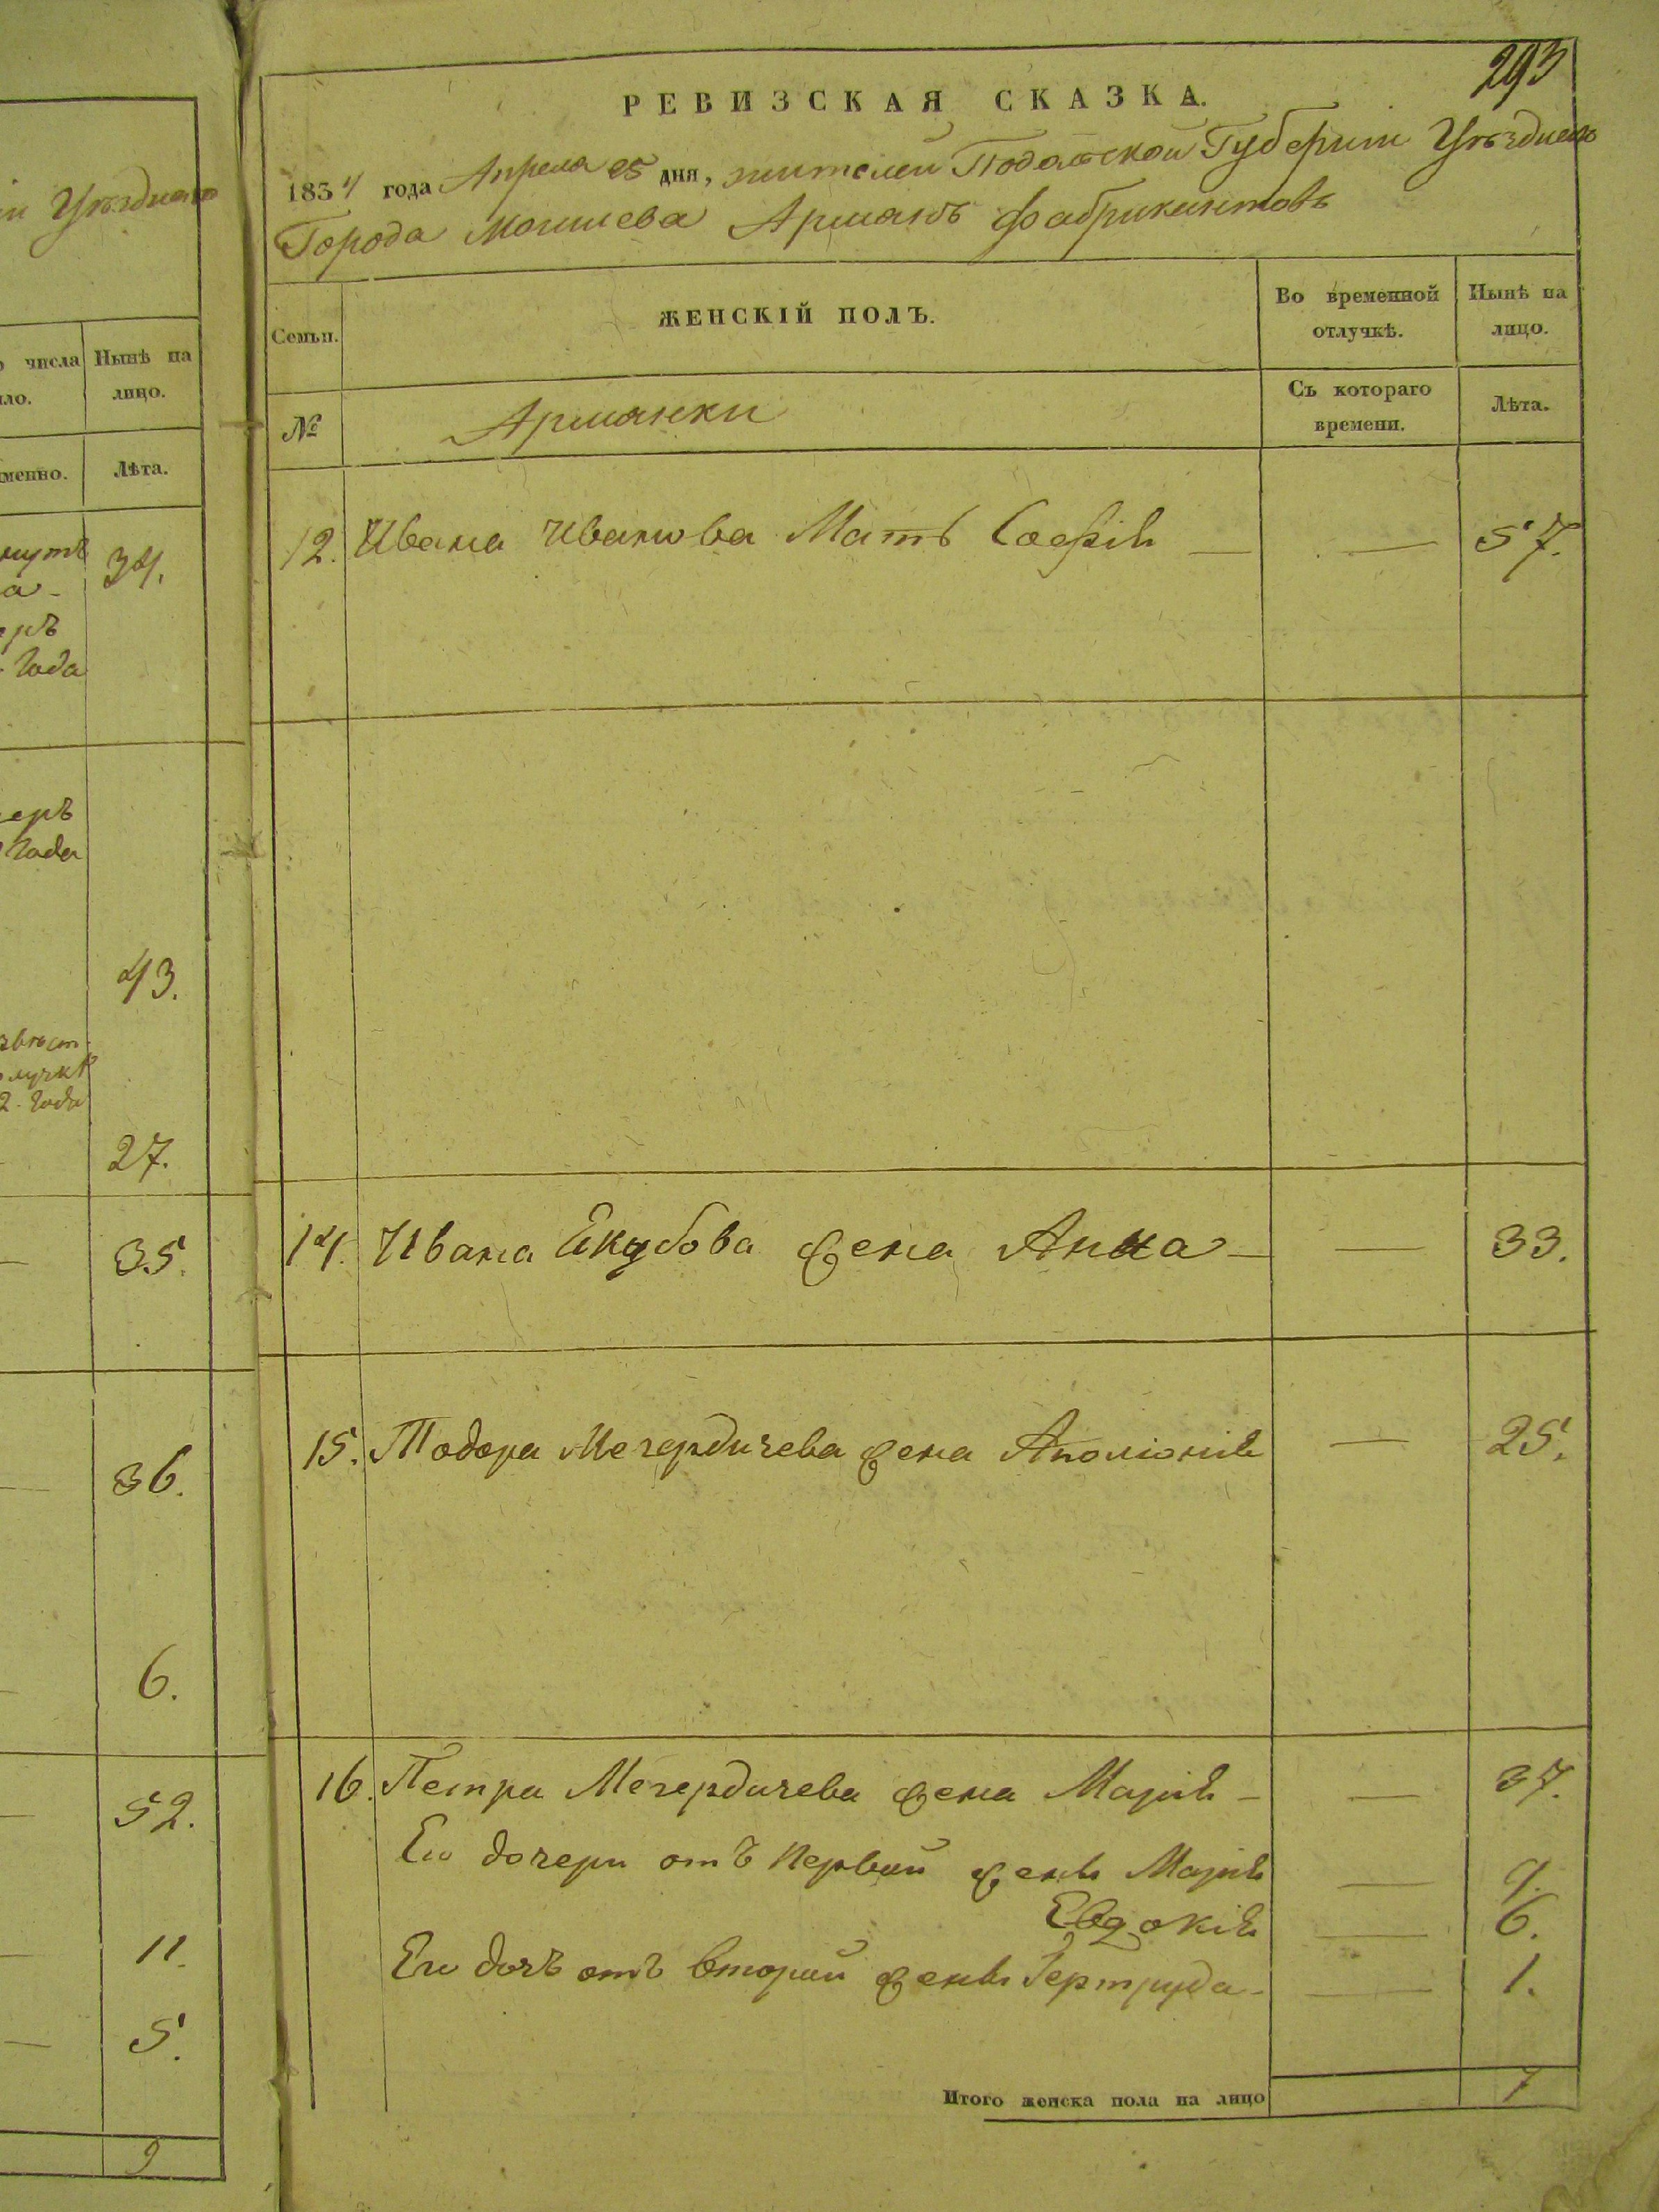 293
РЕВИЗСКАЯ СКАЗКА.
1834 года Апреля 25 дня, жителей Подольской Губернии Уѣзднаго
Города Могилева Армянъ Фабрикантовъ
Семьи.
ЖЕНСКІЙ ПОЛЪ.
Во временной отлучкѣ.
Нынѣ на лицо.
№
Армянки
Съ котораго времени.
Лѣта.
12. Ивана Иванова Мать Софія — — 57.
14. Ивана Екубова жена Анна — — 33.
15. Тодора Мегердичева жена Аполіонія — 25.
16. Петра Мегердичева жена Марія — — 37.
Его дочери отъ первой жены Марія — 9.
Евдокія — 6.
Его дочь отъ второй жены Гертруда — — 1.
Итого женска пола на лицо 7
Уѣзднаго
числа
Нынѣ на
ло.
лицо.
менно.
Лѣта.
34.
а -
еръ
Года
еръ
Года
43.
2. Года
27.
— 35.
— 36.
— 6.
— 52.
— 11.
— 5.
9